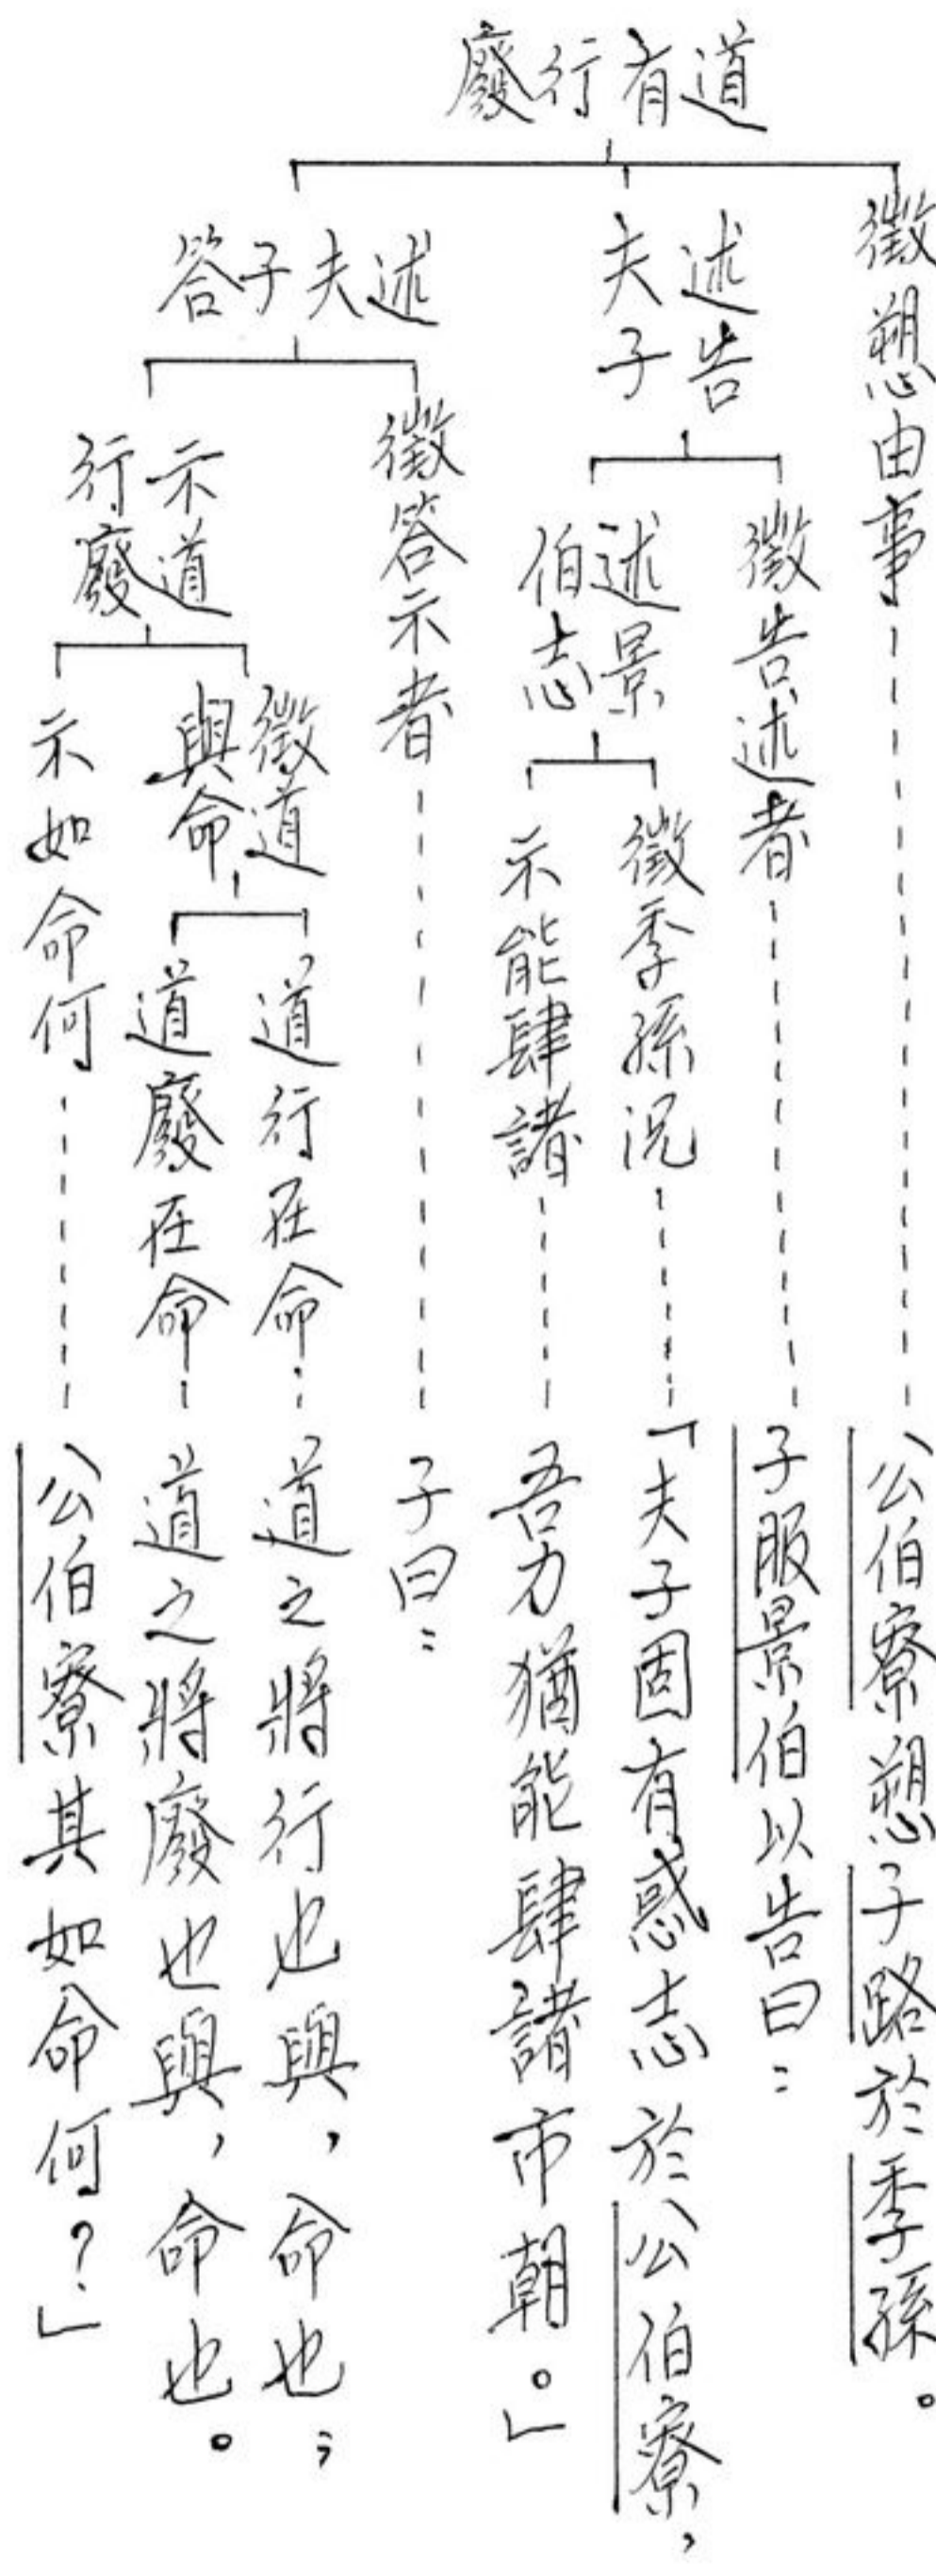 道有行廢
徵愬由事
公伯寮愬子路於季孫。
述告夫子
徵告述者
子服景伯以告曰：
述景伯志
徵季孫況
「夫子固有惑志於公伯寮，
示能肆諸
吾力猶能肆諸市朝。」
述夫子答
徵答示者
子曰：
示道行廢
徵道與命
道行在命
道之將行也與，命也；
道廢在命
道之將廢也與，命也。
示如命何
公伯寮其如命何？」